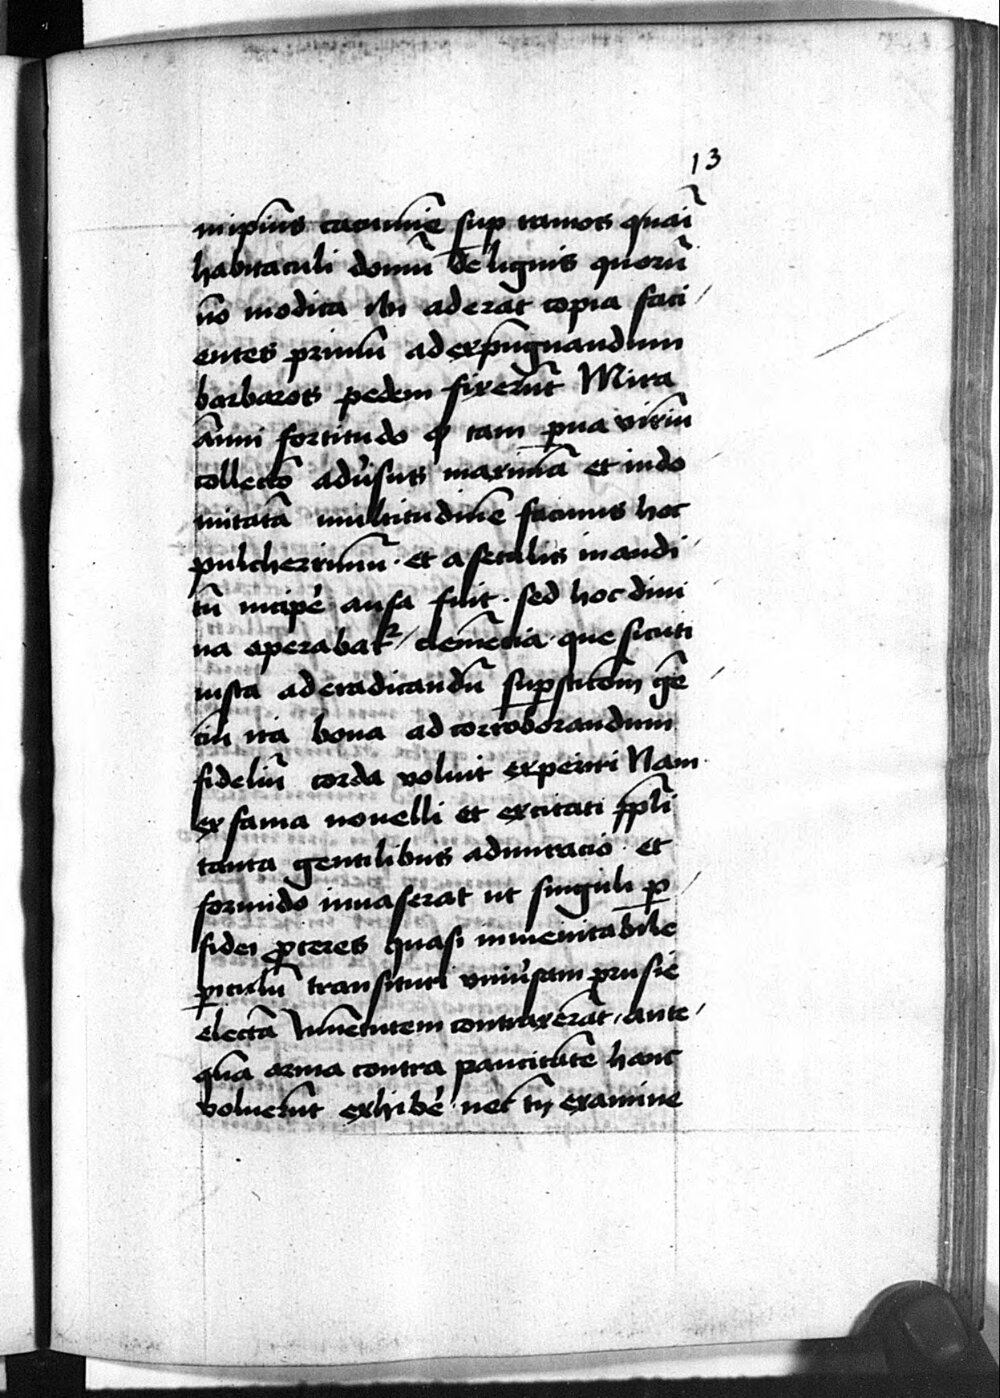 13
mipius cacumīe sup ramos quaī
habitaculi domū de lignis quorū
nō modica ibi aderat copia faci
entes primū ad expūgnandum
barbaros pedem fixerūt Mira
aīmi fortitudo q̨ tam pua viriū
collectō aduˀsus maximā et indo
mitatā multitudinē facinus hoc
pulcherrimū · et a seculis inaudi
tū incipe᷑ ausa fuit · sed hoc diui
na operabat᷑ / clemēcia · que sicuti
iusta ad eradicandū supsticōm gē
ciū ita bona ad corroborandum
fidelíū corda voluit experiri Nam
ex fama nouelli et excitati ppl̄i
tanta gentilibus admiracio · et
formido inuaserat ut singuli p
fidei pceres quasi ineuitabile
piculū transituri vniuˀsam prusie
electā Iuuentutem contraxerāt / ante
quā arma contra paucitatē hanc
voluerūt exhibe᷑ · nec tn̄ examine